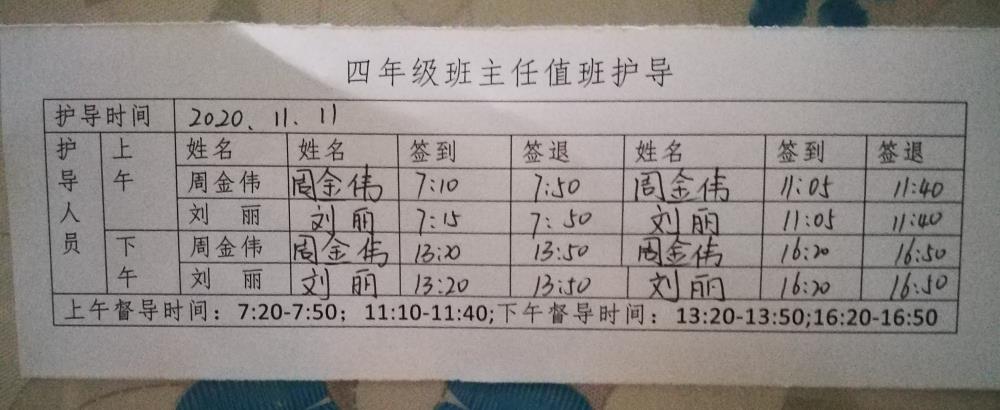 四年级班主任值班护导
护导时间 2020、11、11
护导人员 上午 姓名 姓名 签到 签退 姓名 签到 签退
周金伟 周金伟 7:10 7:50 周金伟 11:05 11:40
刘 丽 刘丽 7:15 7:50 刘丽 11:05 11:40
下午 周金伟 周金伟 13:20 13:50 周金伟 16:20 16:50
刘 丽 刘丽 13:20 13:50 刘丽 16:20 16:50
上午督导时间：7:20-7:50；11:10-11:40;下午督导时间：13:20-13:50;16:20-16:50